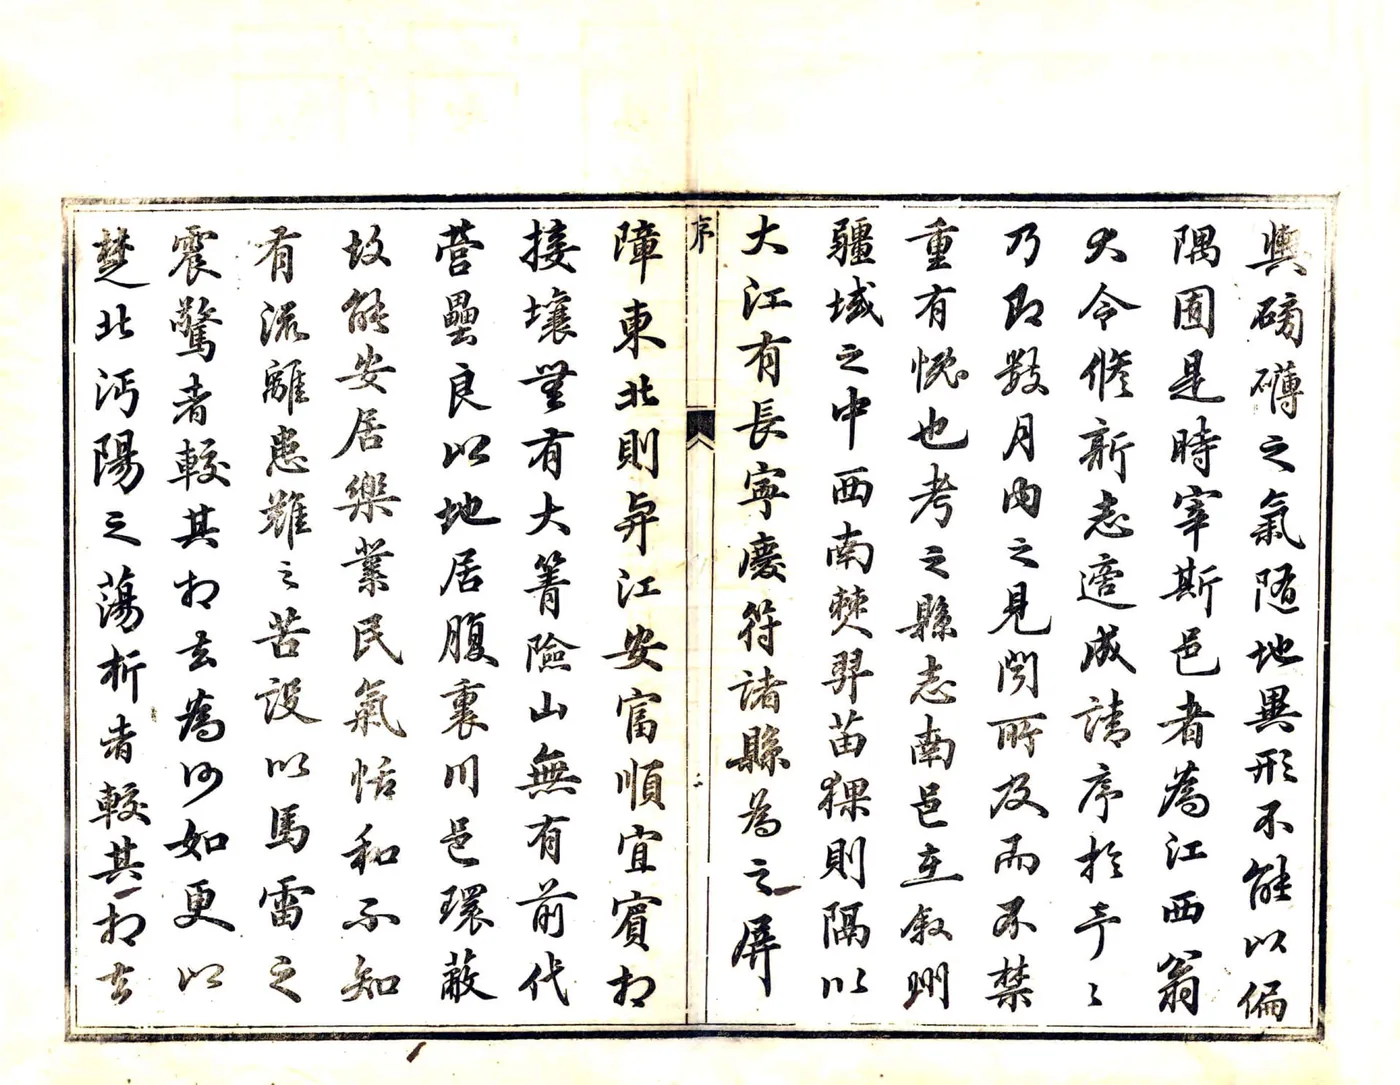 輿磅礡之氣随地異形不能以偏
隅囿是時宰斯邑者為江西翁
大令修新志適成請序於予〻
乃即数月內之見聞所及而不禁
重有慨也考之縣志南邑在叙州
疆域之中西南僰羿苗猓則隅以
大江有長寧慶符諸縣為之屏
序
障東北則與江安富順宜賓相
接壤無有大箐險山無有前代
營壘良以地居腹裏川邑環蔽
故能安居樂業民氣恬和不知
有流離患難之苦設以馬雷之
震驚者較其相去為何如更以
楚北沔陽之蕩析者較其相去